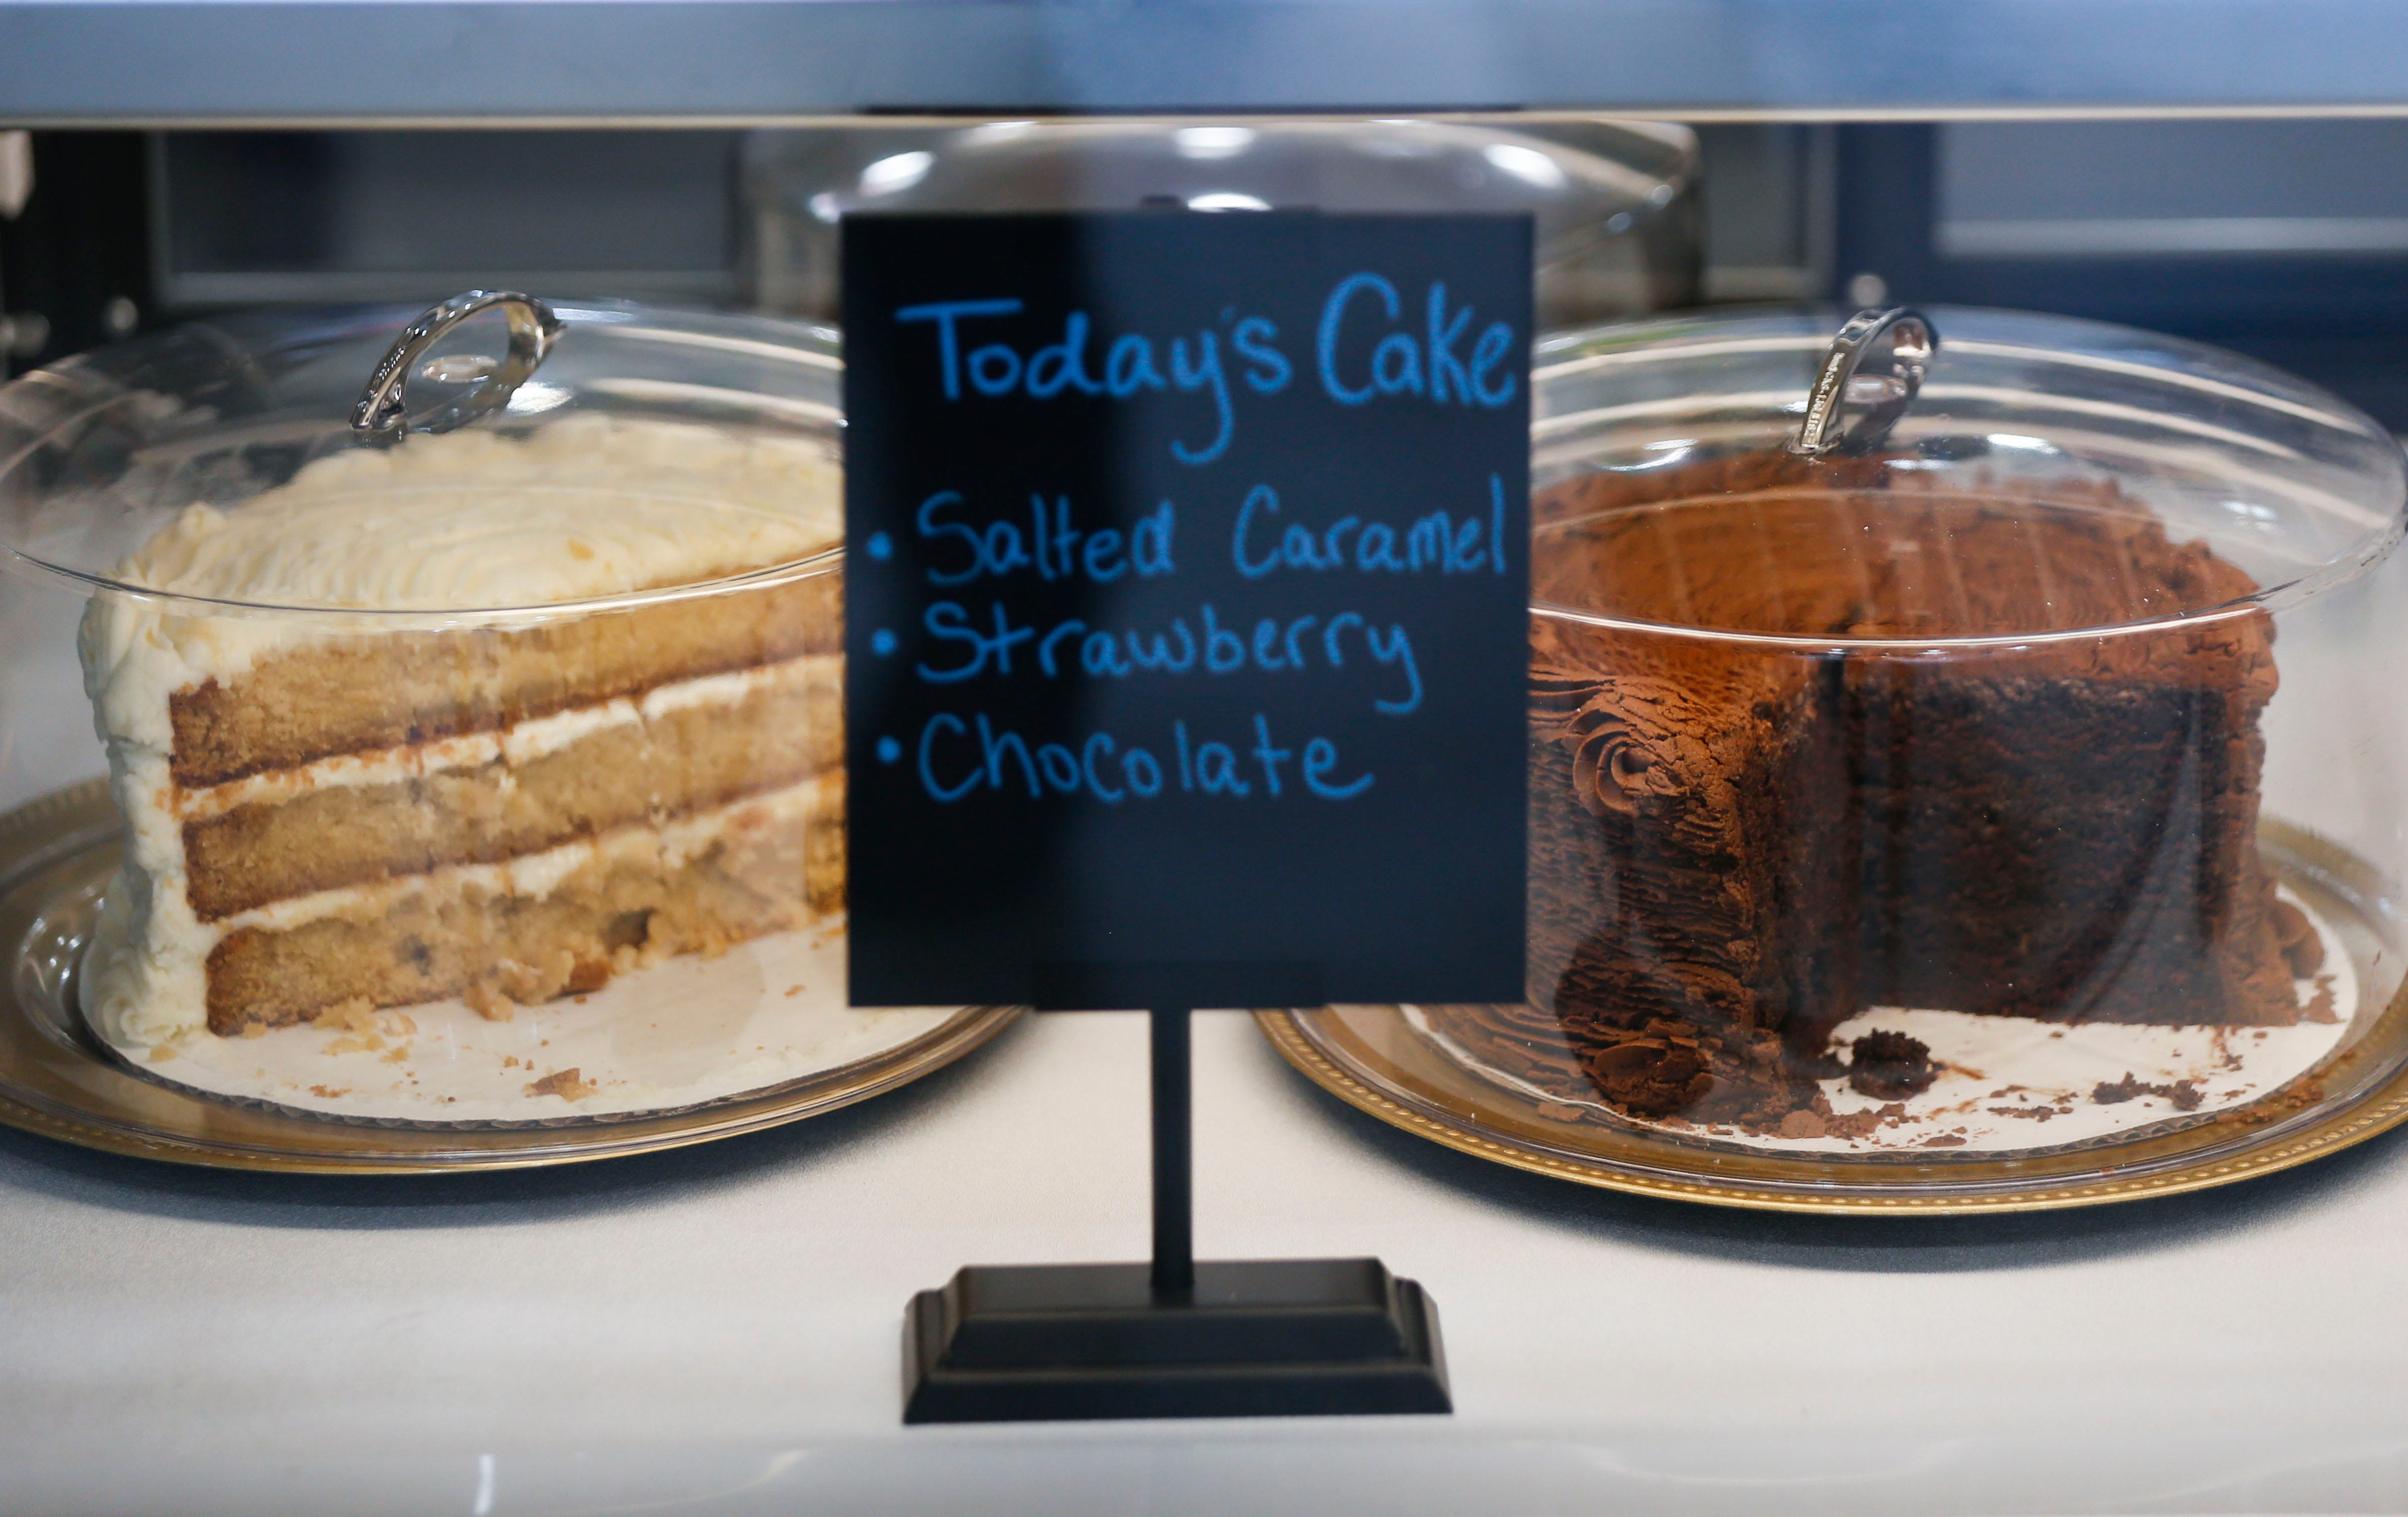 Today's Cake
• Salted Caramel
• Strawberry
• Chocolate